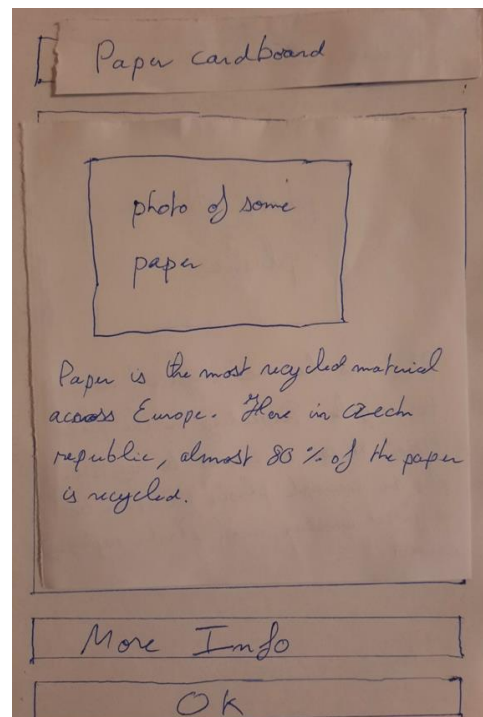 Paper cardboard
photo of some
paper
Paper is the most recycled material
across Europe. Here in czech
republic, almost 80 % of the paper
is recycled.
More Info
OK